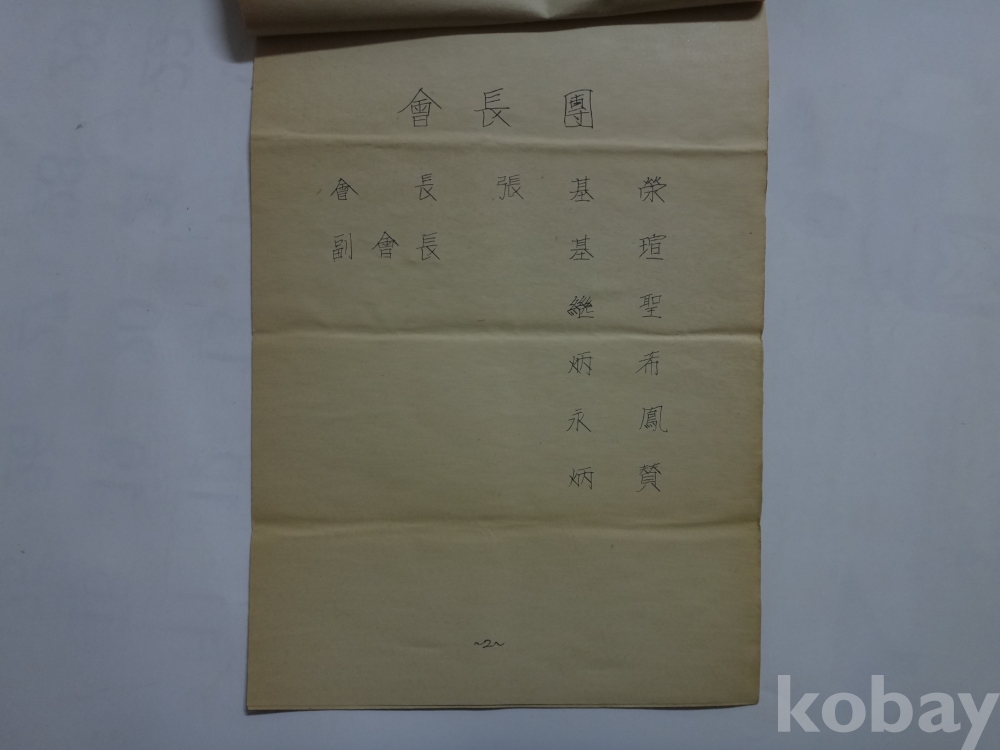 會長團
會長 張基榮
副會長 基瑄
繼聖
炳希
永鳳
炳贊
~2~
kobay